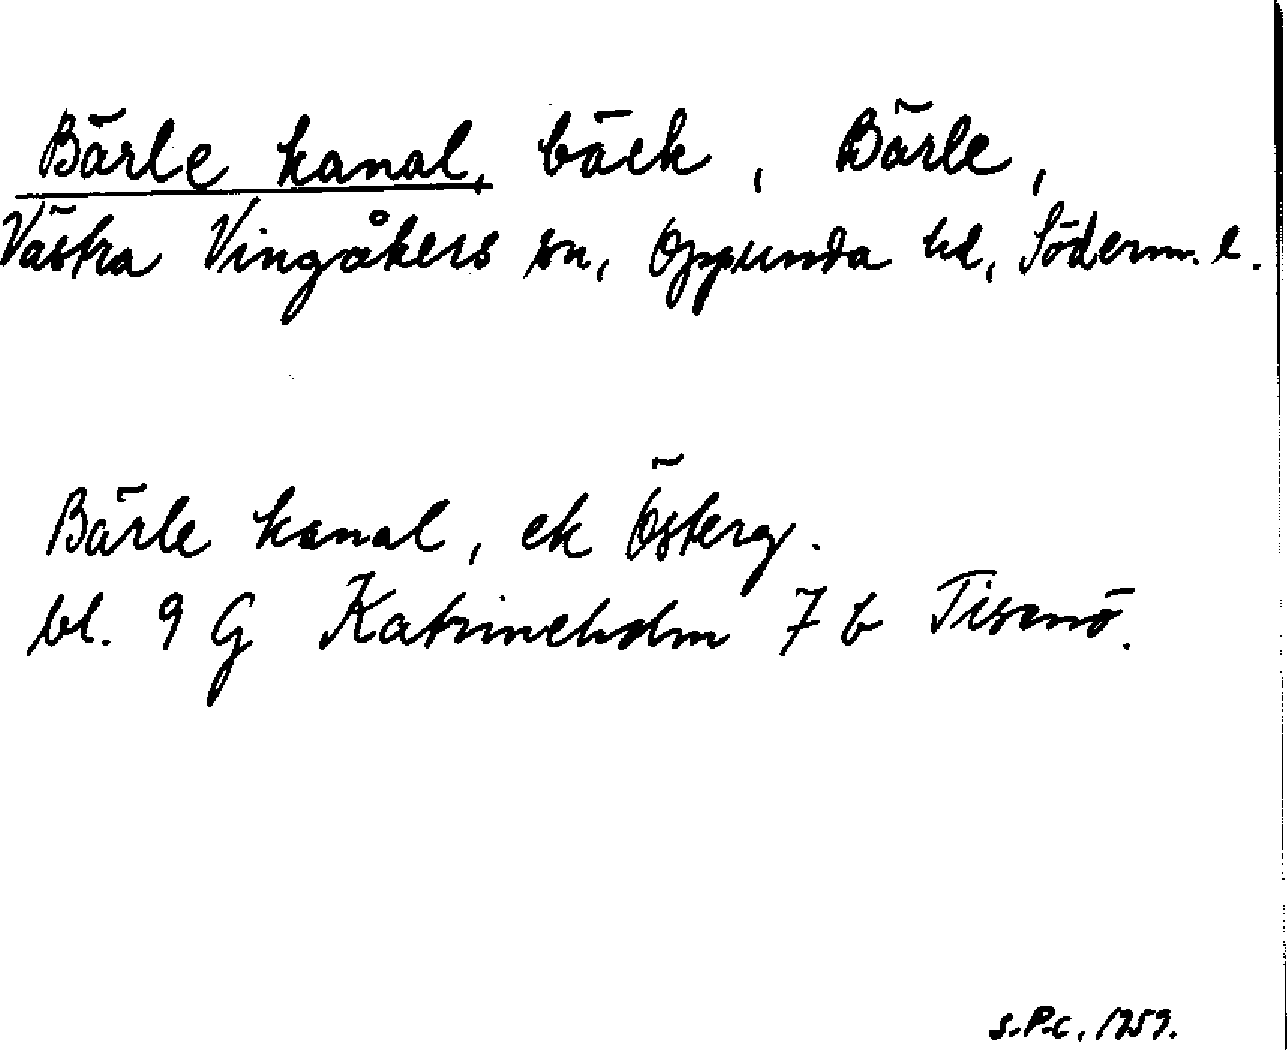 Bärle kanal, bäck, Bärle,
Västra Vingåkers sn, Oppunda hd, Söderm. l.
Bärle kanal, ek Österg.
bl. 9 G Katrineholm 7 b Tisenö.
S.P.C, 1959.